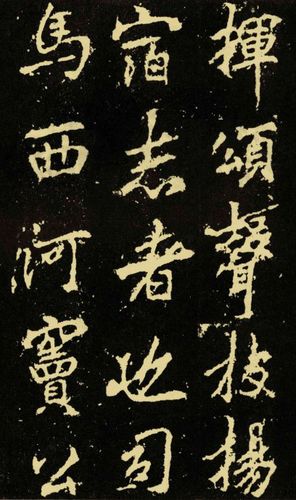 揮頌聲披揚
宿志者也司
馬西河竇公